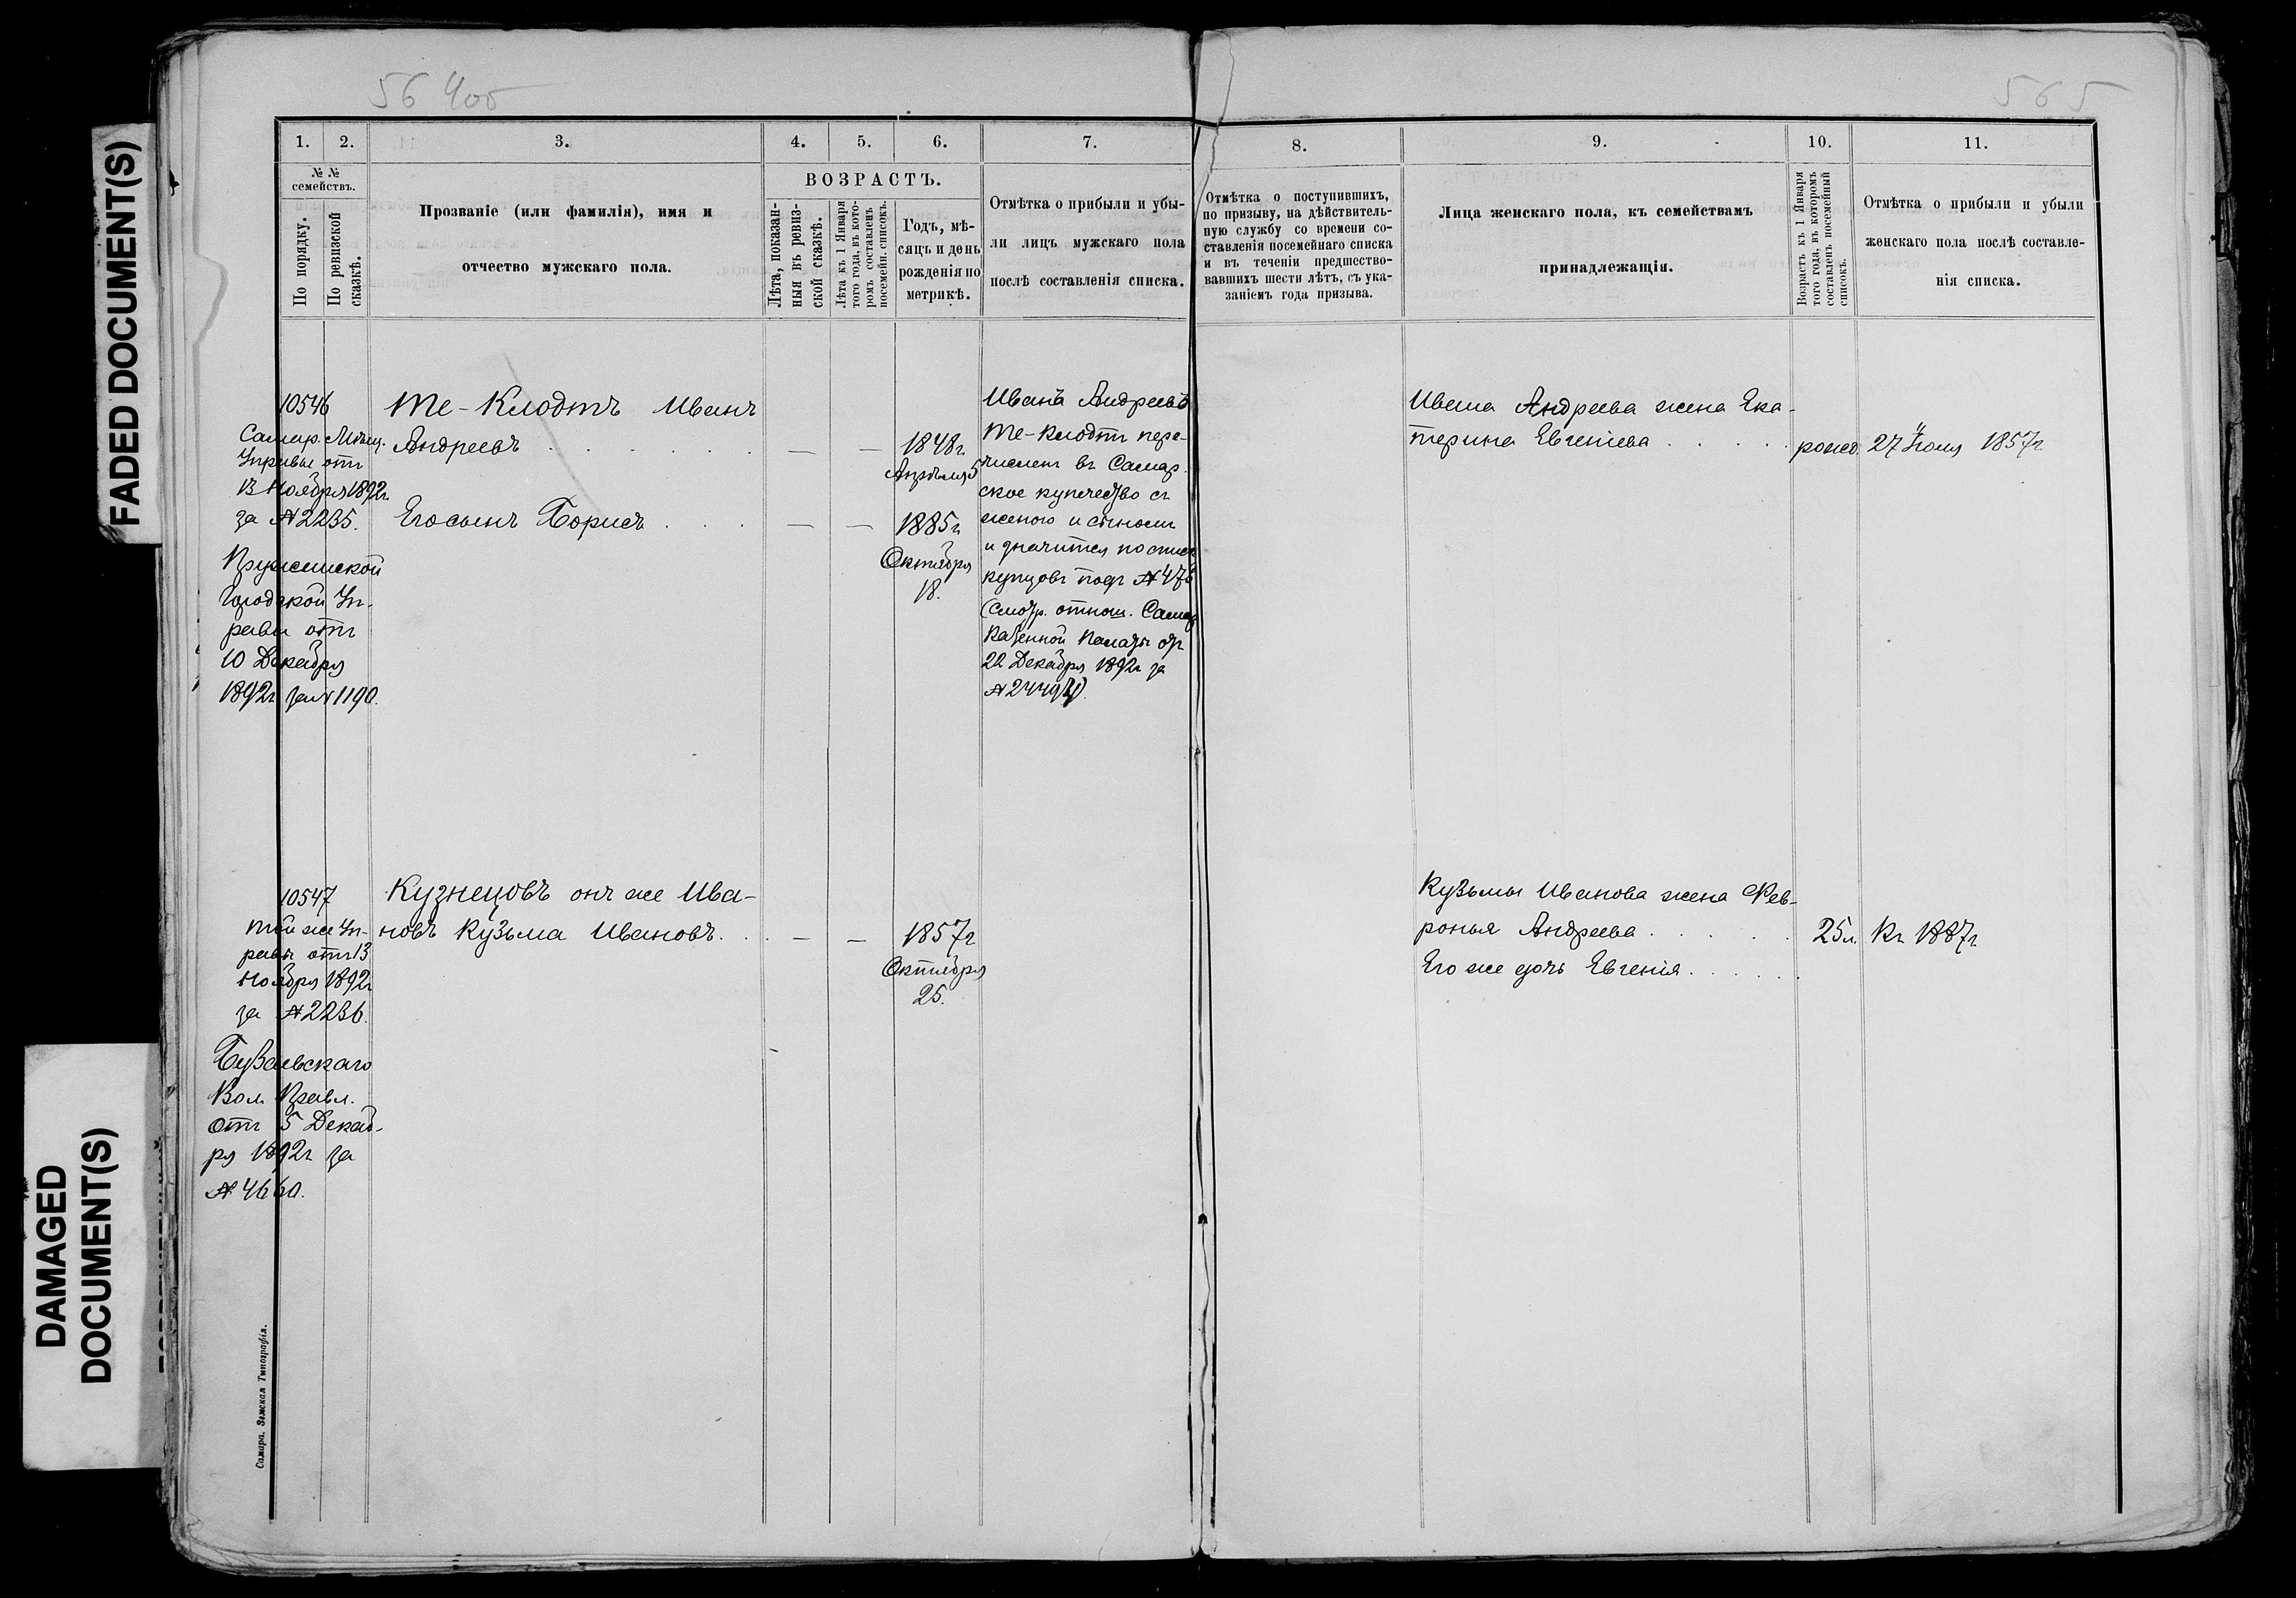 FADED DOCUMENT(S)
DAMAGED
DOCUMENT(S)
565
1.
2.
3.
4.
5.
6.
7.
8.
9.
10.
11.
№ №
семействъ.
По порядку.
По ревизской
сказкѣ.
Прозваніе (или фамилія), имя и
отчество мужскаго пола.
ВОЗРАСТЪ.
Лѣта, показан-
ныя въ ревиз-
ской сказкѣ.
Лѣта къ 1 Января
того года, въ кото-
ромъ составленъ
посемейн. списокъ.
Годъ, мѣ-
сяцъ и день
рожденія по
метрикѣ.
Отмѣтка о прибыли и убы-
ли лицъ мужскаго пола
послѣ составленія списка.
Отмѣтка о поступившихъ,
по призыву, на дѣйствитель-
ную службу со времени со-
ставленія посемейнаго списка
и въ теченіи предшество-
вавшихъ шести лѣтъ, съ ука-
заніемъ года призыва.
Лица женскаго пола, къ семействамъ
принадлежащія.
Возрастъ къ 1 Января
того года, въ которомъ
составленъ посемейный
списокъ.
Отмѣтка о прибыли и убыли
женскаго пола послѣ составле-
нія списка.
10546
Самар. Мѣщ.
Управы отъ
13 Ноября 1892г.
за № 2235.
Пружанской
Городской Уп-
равы отъ
10 Декабря
1892г за № 1190.
Те-Клодтъ Иванъ
Андреевъ
Его сынъ Борисъ
— —
1848г
Апрѣля 5
— —
1885г
Октября
18.
Иванъ Андреевъ
Те-Клодтъ пере-
численъ въ Самар-
ское купечество съ
женою и сыномъ
и значится по списк
купцовъ подъ № 476
(смотр. отнош. Самар
Казенной Палаты отъ
22 Декабря 1892г за
Ивана Андреева жена Ека-
терина Евгеніева
рожд. 27 Іюля 1857г
10547
той же Уп-
равы отъ 13
Ноября 1892г
за № 2236.
Бузаевскаго
Вол. Правл.
отъ 5 Декаб-
ря 1892г за
№ 4660.
Кузнецовъ онъ же Ива-
новъ Кузьма Ивановъ.
— —
1857г
Октября
25.
Кузьмы Иванова жена Фев-
ронья Андреева
25л. Къ 1887г
Его же дочь Евгенія
Самара. Земская Типографія.